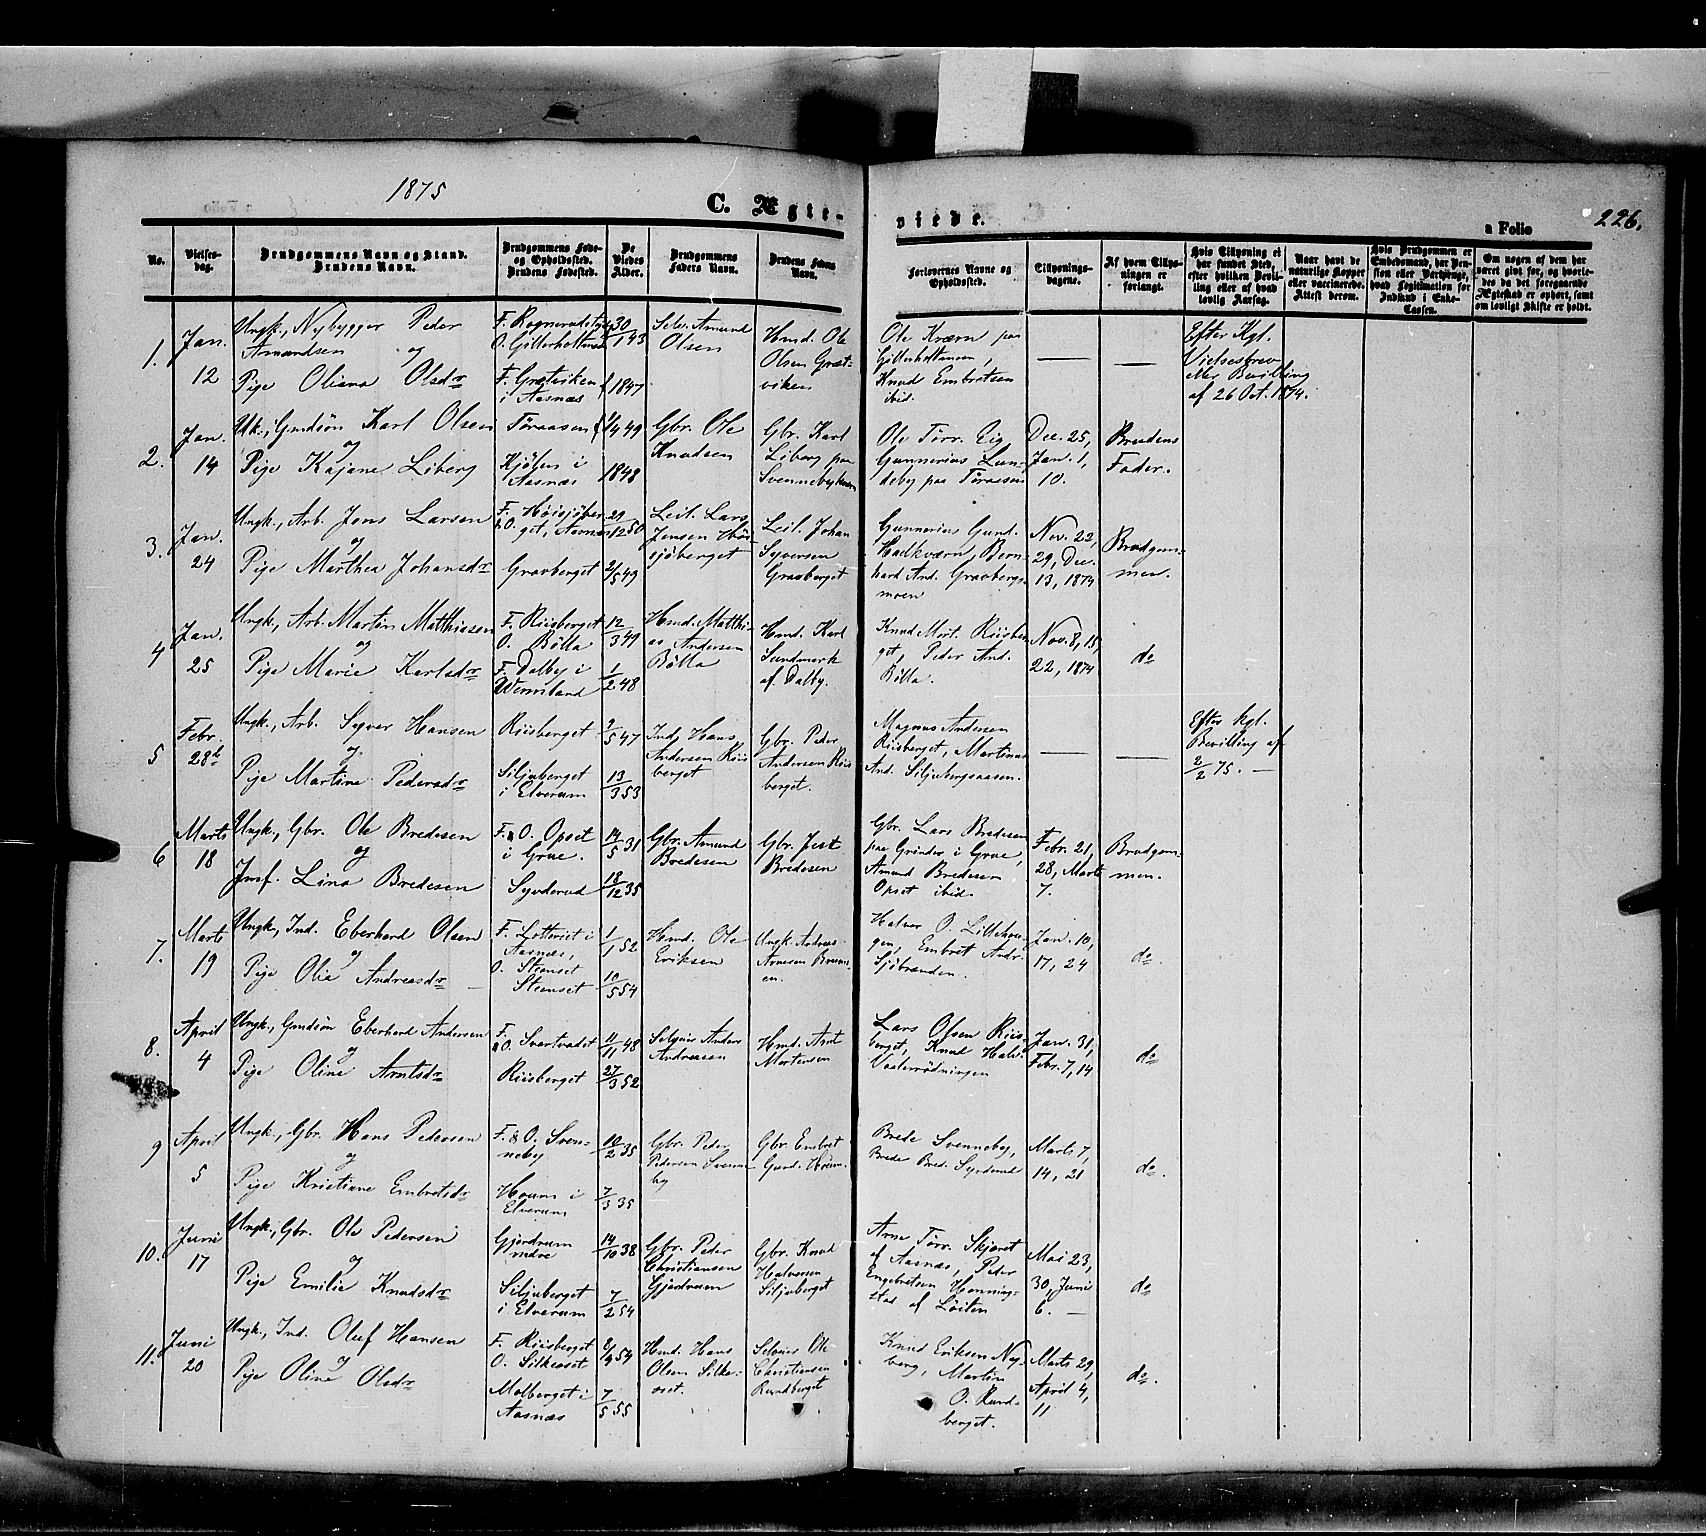 1875
C. Ægte-
viede.
a Folio
226.
No.
Vielses-
dag.
Brudgommens Navn og Stand.
Brudens Navn.
Brudgommens Føde-
og Opholdssted.
Brudens Fødested.
De
Viedes
Alder.
Brudgommens
Faders Navn.
Brudens Faders
Navn.
Forlovernes Navne og
Opholdssted.
Tillysnings-
dagene.
Af hvem Tillys-
ningen er
forlangt.
Hvis Tillysning ei
har fundet Sted,
efter hvilken Bevil-
ling eller af hvad
lovlig Aarsag.
Naar havt de
naturlige Kopper
eller vaccinerede.
Attest derom.
Hvis Brudgommen er
Embedsmand, har Pen-
sion eller Vartpenge,
hvad Legitimation for
Indskud i Enke-
Cassen.
Om nogen af dem har
været gift før, og hvorle-
des da det foregaaende
Ægteskab er ophørt, samt
om lovligt Skifte er holdt.
1.
Jan.
12
Ungk., Nybygger Peder
Amundsen og
Pige Oliana Olsdr
O. Gitterholtmoen
F. Græsviken
i Aasnæs
30
1 43
1847
Selv. Amund
Olsen
Hmd. Ole
Olsen Græs-
viken
Ole Kværn paa
Gitterholtmoen,
Knud Embretsen
ibid.
Efter Kgl.
Bevilling
af 26 Oct. 1874.
2.
Jan.
14
Uk., Gmdsøn Karl Olsen
og
Pige Kajane Liberg
Töraasen
Kjölen i
Aasnæs
49
1848
Gbr. Ole
Knudsen
Gbr. Karl
Liberg paa
Svennebykjølen
Ole Törr. Eig,
Gunnerius Lun-
deby paa Töraasen
Dec. 25,
Jan. 1,
10.
Brudens
Fader.
3.
Jan.
24
Ungk., Arb. Jens Larsen
og
Pige Marthea Johansdr
F. Höisjöber-
&O. get, Aasnæs
Gravberget
29
12 50
2/5 49
Leil. Lars
Jensen Höi-
sjöberget
Leil. Johan
Syversen
Gravberget
Gunnerius Gund.
Hallkværn, Bern-
hard And. Gravbergs-
moen
Nov. 22,
29, Dec.
13, 1874
Brudgom-
men.
4
Jan.
25
Ungk., Arb. Martin Matthiasen
og
Pige Marie Karlsdr
F. Riisberget
O. Bölla
F. Dalby i
Wermland
12
3 49
1
2 48
Hmd. Matthi-
as Andersen
Bölla
Hmd. Karl
Sundmark
af Dalby.
Knud Mort. Riisber-
get, Peder And.
Bölla.
Nov. 8, 15,
22, 1874
do
5
Febr.
28de
Ungk., Arb. Syver Hansen
og
Pige Martine Pedersdr
Riisberget
Siljuberget
i Elverum
2
5 47
13
3 53
Ind. Hans
Andersen Riis-
berget
Gbr. Peder
Andersen Riis-
berget.
Magnus Andersen
Riisberget, Martinus
And. Siljubergsaasen.
Efter kgl.
Bevilling af
2/2 75.
6
Marts
18
Ungk., Gbr. Ole Bredesen
og
Jmf. Lina Bredesen
F.&O. Opset
i Grue.
Synderud
14
5 31
18
12 35
Gbr. Amund
Bredesen
Gbr. Jest
Bredesen
Gbr. Lars Bredesen
paa Grinder i Grue,
Amund Bredesen
Opset ibid.
Febr. 21,
28, Marts
7.
Brudgom-
men.
7.
Marts
19
Ungk., Ind. Eberhard Olsen
og
Pige Olia Andreasdr
F. Lotteriet i
Aasnæs,
O. Stenset
Stenset
1
1 52
10
5 54
Hmd. Ole
Eriksen
Ungk. Andreas
Halvor O. Lillehau-
gen, Embret Andr.
Sjöbranden.
Jan. 10,
17, 24
do.
8.
April
4
Ungk., Gmdsøn Eberhard Andersen
og
Pige Oline Arntsdr
F.
&O. Svartvadet
Riisberget
11
11 48
27
3 52
Selveier Anders
Andreasen
Hmd. Arnt
Mortensen
Lars Olsen Riis-
berget, Knud Halv.
Vaalerrödningen
Jan. 31,
Febr. 7, 14
do
9
April
5
Ungk., Gbr. Hans Pedersen
og
Pige Kristiane Embretsdr
F. & O. Sven-
neby
Houm i
Elverum
10
2 35
7
3 35
Gbr. Peder
Pedersen Svenne-
by
Gbr. Embret
Gund. Houm.
Brede Svenneby,
Brede Bred. Synderud
Marts 7,
14, 21
do.
10.
Juni
17
Ungk., Gbr. Ole Pedersen
og
Pige Emilie Knudsdr
Gjerdrum
nedre
Siljuberget
i Elverum
14
10 38
7
2 54
Gbr. Peder
Christiansen
Gjerdrum
Gbr. Knud
Halvorsen
Siljuberget
Arne Törr. Skjæret
af Aasnæs, Peder
Engebretsen Henning-
stad af Löiten
Mai 23,
30, Juni
6.
do
11.
Juni
20
Ungk., Ind. Oluf Hansen
og
Pige Olina Olsdr
F. Riisberget
O. Silkeaset
Malberget i
Aasnæs
8/9 54
7
5 55
Hmd. Hans
Olsen Silke-
aset.
Selveier Ole
Christiansen
Rundberget
Knud Eriksen Ny-
berg, Martin
O. Rund-
berget.
Marts 29,
April 4,
11
do.